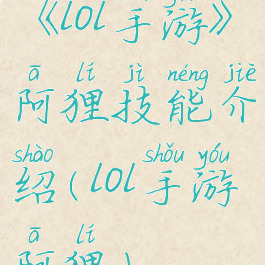 《lol手游》
ā lí jì néng jiè
阿狸技能介
shào shǒu yóu
绍(lol手游
ā lí
阿狸)